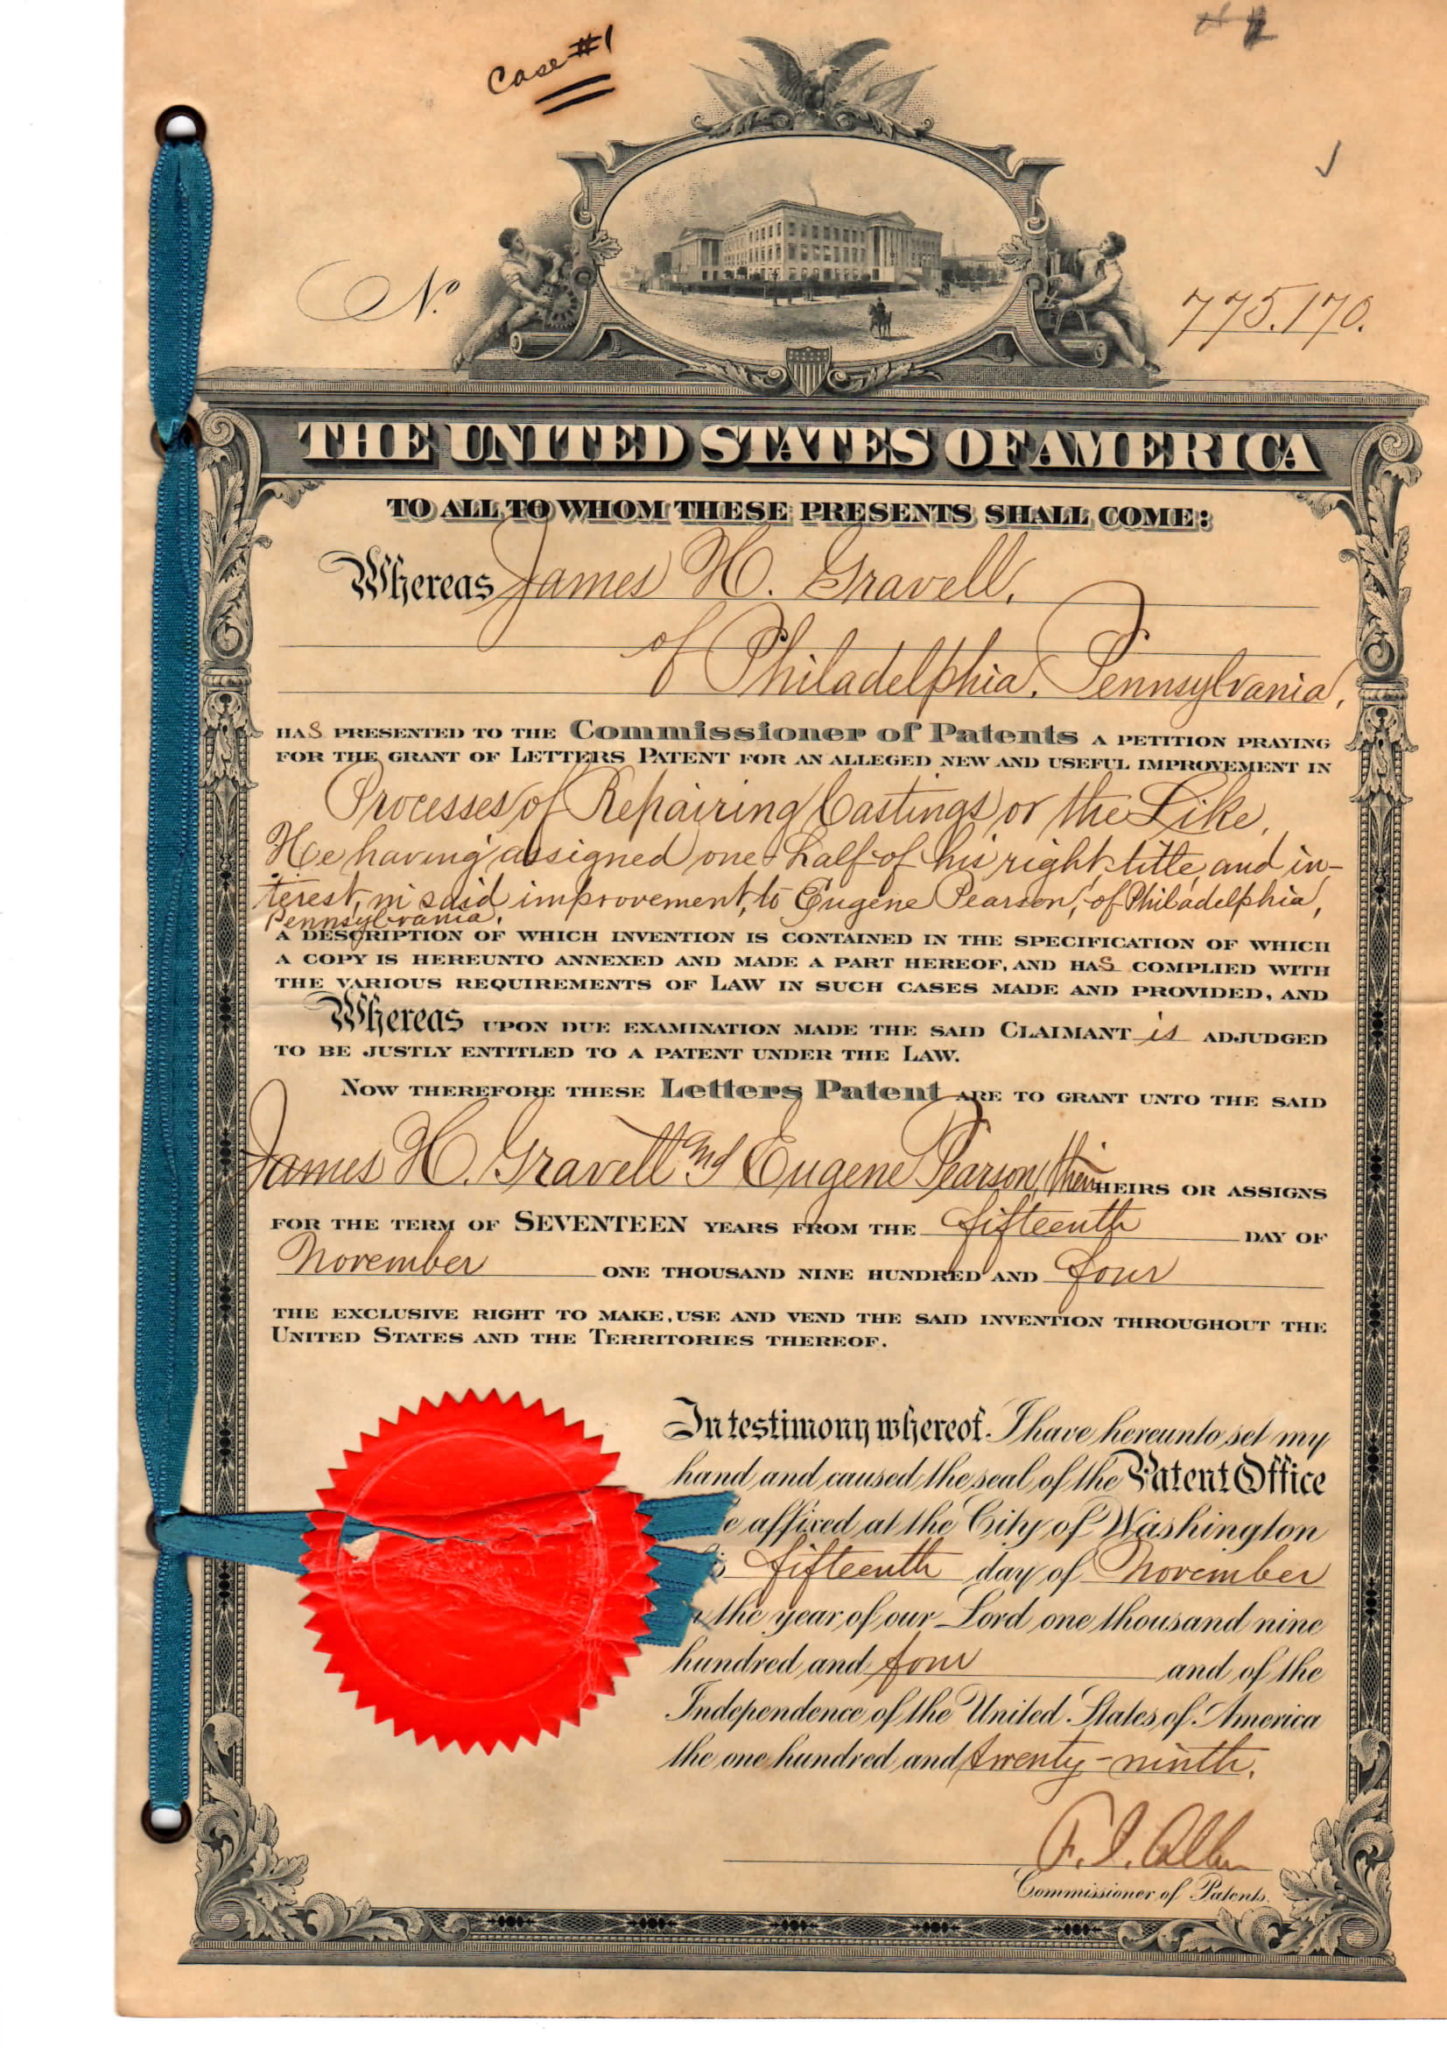 Case #1
No. 775,170.
THE UNITED STATES OF AMERICA
TO ALL TO WHOM THESE PRESENTS SHALL COME:
Whereas James H. Gravell,
of Philadelphia, Pennsylvania,
HAS PRESENTED TO THE Commissioner of Patents A PETITION PRAYING
FOR THE GRANT OF LETTERS PATENT FOR AN ALLEGED NEW AND USEFUL IMPROVEMENT IN
Processes of Repairing Castings or the Like,
He having assigned one-half of his right, title, and in-
terest, in said improvement, to Eugene Pearson, of Philadelphia,
Pennsylvania,
A DESCRIPTION OF WHICH INVENTION IS CONTAINED IN THE SPECIFICATION OF WHICH
A COPY IS HEREUNTO ANNEXED AND MADE A PART HEREOF, AND HAS COMPLIED WITH
THE VARIOUS REQUIREMENTS OF LAW IN SUCH CASES MADE AND PROVIDED, AND
Whereas UPON DUE EXAMINATION MADE THE SAID CLAIMANT is ADJUDGED
TO BE JUSTLY ENTITLED TO A PATENT UNDER THE LAW.
NOW THEREFORE THESE Letters Patent ARE TO GRANT UNTO THE SAID
James H. Gravell and Eugene Pearson, their HEIRS OR ASSIGNS
FOR THE TERM OF SEVENTEEN YEARS FROM THE fifteenth DAY OF
November ONE THOUSAND NINE HUNDRED AND four
THE EXCLUSIVE RIGHT TO MAKE, USE AND VEND THE SAID INVENTION THROUGHOUT THE
UNITED STATES AND THE TERRITORIES THEREOF.
In testimony whereof, I have hereunto set my
hand and caused the seal of the Patent Office
e affixed at the City of Washington
s fifteenth day of November
the year of our Lord one thousand nine
hundred and four and of the
Independence of the United States of America
the one hundred and twenty-ninth.
F. I. Allen
Commissioner of Patents.